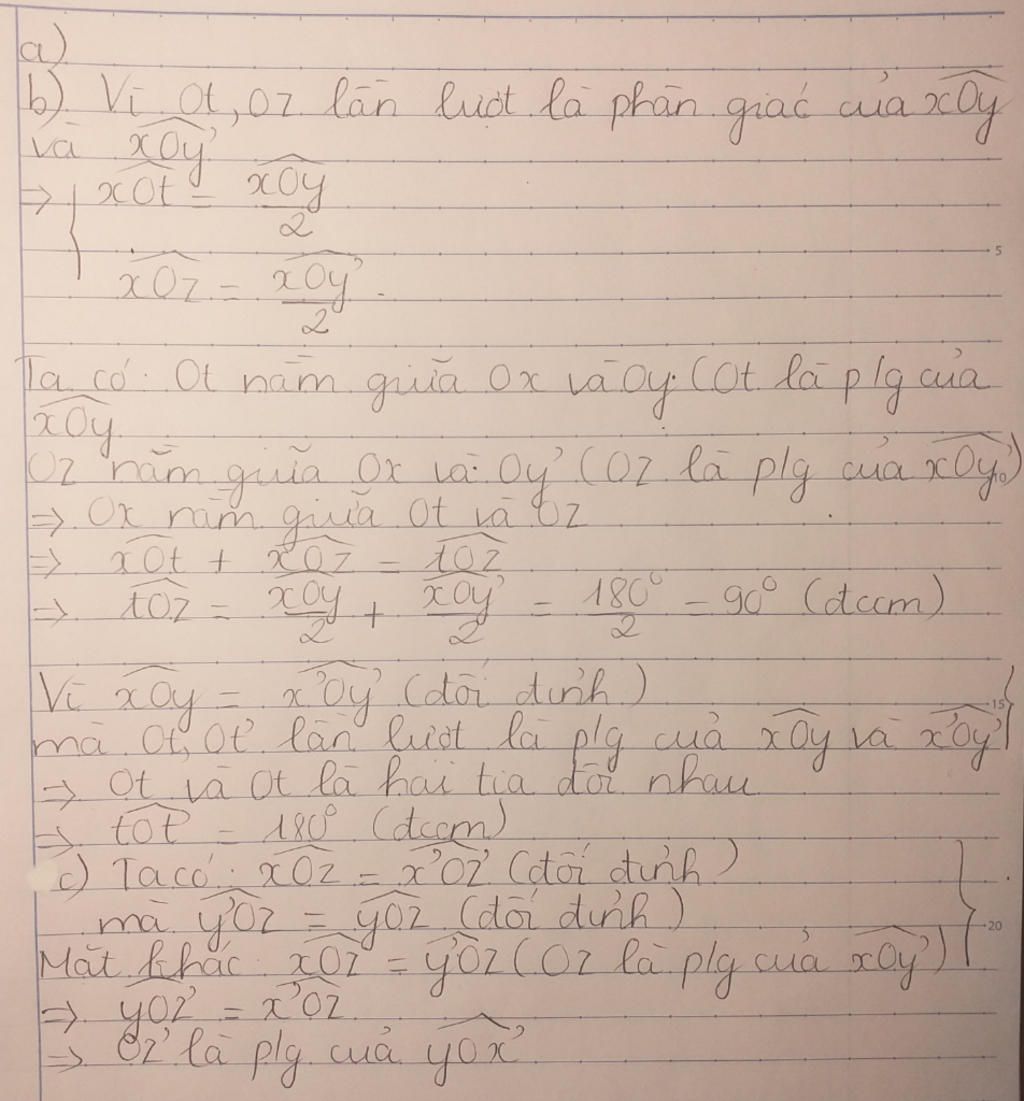 a)
b) Vì Ot, Oz lần lượt là phân giác của xOy
và xOy'
=> { xOt = xOy/2
xOz = xOy'/2.
Ta có: Ot nằm giữa Ox và Oy. (Ot là p/g của
xOy
Oz nằm giữa Ox và: Oy' (Oz là p/g của xOy')
=> Ox nằm giữa Ot và Oz
=> xOt + xOz = tOz
=> tOz = xOy/2 + xOy'/2 = 180°/2 = 90° (đccm)
Vì xOy = x'Oy' (đối đỉnh)
mà Ot, Ot' lần lượt là p/g của xOy và x'Oy'
=> Ot và Ot là hai tia đối nhau
=> tOt' = 180° (đccm)
c) Ta có: xOz = x'Oz' (đối đỉnh)
mà y'Oz = yOz' (đối đỉnh)
Mặt khác: xOz = y'Oz (Oz là p/g của xOy')
=> yOz' = x'Oz'
=> Oz' là p/g của yOx'
5
10
15
20